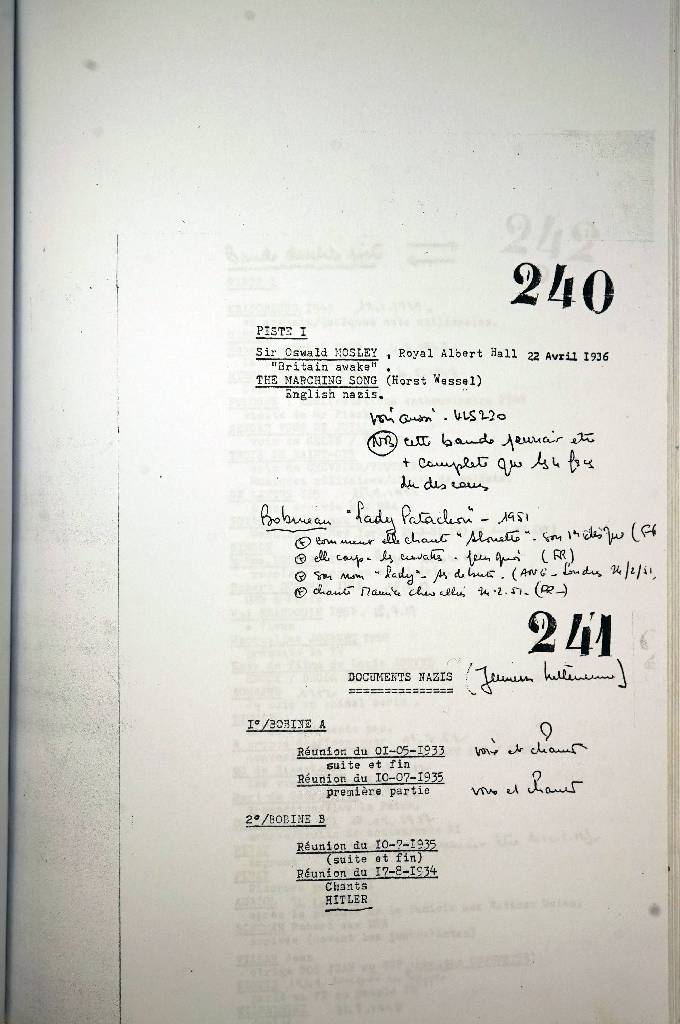 240
PISTE I
Sir Oswald MOSLEY , Royal Albert Hall 22 Avril 1936
"Britain awake" .
THE MARCHING SONG (Horst Wessel)
English nazis.
voir aussi
NB cette bande pourrait être
+ complète que les 4 fcs
du discours
Bobineau "Lady Patachou" - 1951
comment elle chante "Alouette" - son 1er disque
elle coupe les cravates - pourquoi (FR)
son nom "Lady" - ses débuts . (ANG - Londres 24/2/51,
chante Maurice Chevallier 24.2.51. (FR-)
241
DOCUMENTS NAZIS (Jeunesses hitlériennes)
1°/BOBINE A
Réunion du 01-05-1933 voix et chœur
suite et fin
Réunion du 10-07-1935
première partie voix et chœur
2°/BOBINE B
Réunion du 10-7-1935
(suite et fin)
Réunion du 17-8-1934
Chants
HITLER